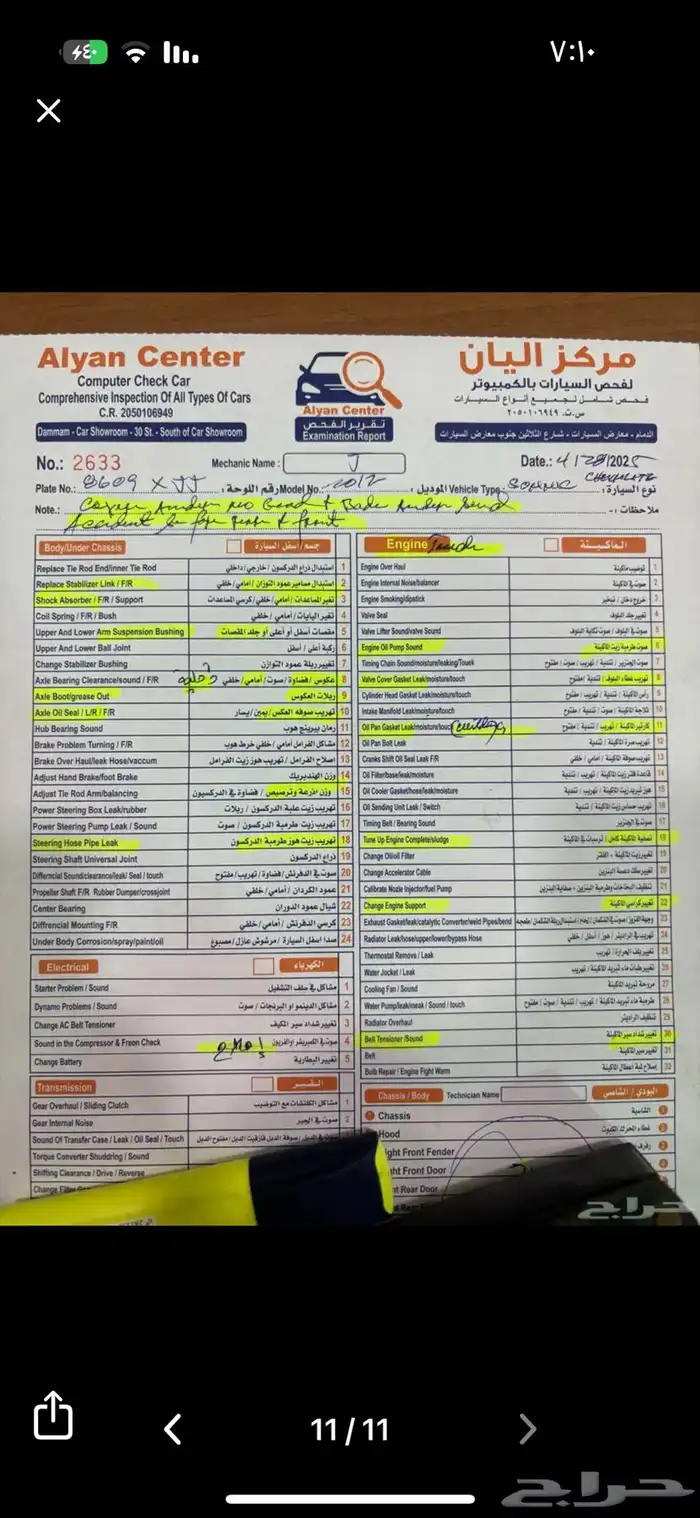 ٤٠
٧:١٠
Alyan Center
Computer Check Car
Comprehensive Inspection Of All Types Of Cars
C.R. 2050106949
Dammam - Car Showroom - 30 St. - South of Car Showroom
Alyan Center
تقرير الفحص
Examination Report
مركز اليان
لفحص السيارات بالكمبيوتر
فحص شامل لجميع أنواع السيارات
س.ت. ٢٠٥٠١٠٦٩٤٩
الدمام - معارض السيارات - شارع الثلاثين جنوب معارض السيارات
No.: 2633
Mechanic Name : J
Date.: 4/28/2025
Plate No.: 8609 XJJ رقم اللوحة: Model No.: 2012 الموديل: Vehicle Type: SONNIC CHEVROLETE نوع السيارة:
Note.: ملاحظات :-
Accident front
Body/Under Chassis جسم/أسفل السيارة
Replace Tie Rod End/Inner Tie Rod استبدال ذراع الدركسون / خارجي/داخلي 1
Replace Stabilizer Link / F/R استبدال مسامير عمود التوازن / امامي/خلفي 2
Shock Absorber / F/R / Support تغير المساعدات / أمامي/خلفي/كرسي المساعدات 3
Coil Spring / F/R / Bush تغير اليايات / امامي/خلفي 4
Upper And Lower Arm Suspension Bushing مقصات أسفل أو أعلى أو جلد المقصات 5
Upper And Lower Ball Joint ركبة أعلى / أسفل 6
Change Stabilizer Bushing تغيير ربلة عمود التوازن 7
Axle Bearing Clearance/sound / F/R عكوس/فضاوة/صوت/أمامي/خلفي 8
Axle Boot/grease Out ربلات العكوس 9
Axle Oil Seal / L/R / F/R تهريب صوفه العكس/يمين/يسار 10
Hub Bearing Sound رمان بيرينج هوب 11
Brake Problem Turning / F/R مشاكل الفرامل أمامي/خلفي خرط هوب 12
Brake Over Haul/leak Hose/vaccum اصلاح الفرامل/تهريب هوز زيت الفرامل 13
Adjust Hand Brake/foot Brake وزن الهندبريك 14
Adjust Tie Rod Arm/balancing وزن اذرعة وترصيص/فضاوة في الدركسيون 15
Power Steering Box Leak/rubber تهريب زيت علبة الدركسون / ربلات 16
Power Steering Pump Leak / Sound تهريب زيت طرمبة الدركسون / صوت 17
Steering Hose Pipe Leak تهريب زيت هوز طرمبة الدركسون 18
Steering Shaft Universal Joint ذراع الدركسون 19
Differncial Sound/clearance/leak/ Seal / touch صوت في الدفرنش/فضاوة/تهريب/مفتوح 20
Propeller Shaft F/R Rubber Dumper/crossjoint عمود الكردان / أمامي/خلفي 21
Center Bearing شيال عمود الدوران 22
Diffrencial Mounting F/R كرسي الدفرنش / أمامي/خلفي 23
Under Body Corrosion/spray/paint/oil صدا اسفل السيارة/مرشوش عازل/مصبوغ 24
Electrical الكهرباء
Starter Problem / Sound مشاكل في سلف التشغيل 1
Dynamo Problems / Sound مشاكل الدينمو او البرنجات / صوت 2
Change AC Belt Tensioner تغيير شداد سير المكيف 3
Sound in the Compressor & Freon Check صوت في الكمبريشر والفريون 4
Change Battery تغيير البطارية 5
Transmission القير
Gear Overhaul / Sliding Clutch مشاكل الكلتشات مع التوضيب 1
Gear Internal Noise صوت في الجير 2
Sound Of Transfer Case / Leak / Oil Seal / Touch
Torque Converter Shuddring / Sound
Shifting Clearance / Drive / Reverse
Engine Touch الماكينة
Engine Over Haul توضيب ماكينة 1
Engine Internal Noise/balancer صوت في الماكينة 2
Engine Smoking/dipstick خروج دخان / تبخير 3
Valve Seal تغيير جلد البلوف 4
Valve Lifter Sound/valve Sound صوت في البلوف / صوت تكاية البلوف 5
Engine Oil Pump Sound صوت طرمبة زيت الماكينة 6
Timing Chain Sound/moisture/leaking/Touek صوت الجنزير / تندية / تهريب / صوت / مفتوح 7
Valve Cover Gasket Leak/moisture/touch تهريب غطاء البلوف / تندية / مفتوح 8
Cylinder Head Gasket Leak/moisture/touch رأس الماكينة / تندية / تهريب / مفتوح 9
Intake Manifold Leak/moisture/touch ثلاجة الماكينة / صوت / تندية / مفتوح 10
Oil Pan Gasket Leak/moisture/touch كارتير الماكينة / تهريب / تندية / مفتوح 11
Oil Pan Bolt Leak تهريب صرة الماكينة / تندية 12
Cranks Shift Oil Seal Leak F/R تهريب صوفة الماكينة / أمامي / خلفي 13
Oil Filter/base/leak/moisture قاعدة فلتر زيت الماكينة / تهريب / تندية 14
Oil Cooler Gasket/hose/leak/moisture هوز تبريد زيت الماكينة / تهريب / تندية 15
Oil Sending Unit Leak / Switch تهريب حساس زيت الماكينة / تندية 16
Timing Belt / Bearing Sound صوت في الجنزير 17
Tune Up Engine Complete/sludge تصفية الماكينة كامل / ترسبات في الماكينة 18
Change Oil/oil Filter تغيير زيت الماكينة + الفلتر 19
Change Accelerator Cable تغيير سلك دعسة البنزين 20
Calibrate Nozle Injector/fuel Pump تنظيف البخاخات وطرمبة البنزين + صفاية البنزين 21
Change Engine Support تغيير كراسي الماكينة 22
Exhaust Gasket/leak/catalytic Converter/weld Pipes/bend 23
Radiator Leak/hose/upper/lower/bypass Hose تهريب في الراديتر / هوز / أسفل / خلفي 24
Thermostat Remove / Leak تغيير بلف الحرارة / تهريب 25
Water Jocket / Leak تغيير طبات ماء تبريد الماكينة / تهريب 26
Cooling Fan / Sound مروحة تبريد الماكينة 27
Water Pump/leak/moisture / Sound / touch طرمبة ماء تبريد الماكينة / تهريب / تندية / صوت / مفتوح 28
Radiator Overhaul تنظيف الراديتر 29
Belt Tensioner /Sound تغيير شداد سير الماكينة 30
Belt تغيير سير الماكينة 31
Bulb Repair / Engine Fight Warm إصلاح لمبة اعطال الماكينة 32
Chassis / Body Technician Name البودي / الشاصي
1 Chassis الشاصية 1
Hood غطاء المحرك الكبوت 2
ight Front Fender رفرف 3
ht Front Door 4
t Rear Door
حراج
11/11
حراج